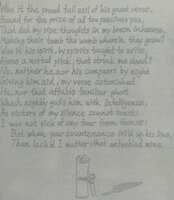 Was it the proud full sail of his great verse,
Bound for the prize of all too precious you,
That did my ripe thoughts in my brain inhearse,
Making their tomb the womb wherein they grew?
Was it his spirit, by spirits taught to write
Above a mortal pitch, that struck me dead?
No, neither he, nor his compeers by night
Giving him aid, my verse astonished.
He, nor that affable familiar ghost
Which nightly gulls him with intelligence,
As victors of my silence cannot boast;
I was not sick of any fear from thence:
But when your countenance fill'd up his line,
Then lack'd I matter; that enfeebled mine.